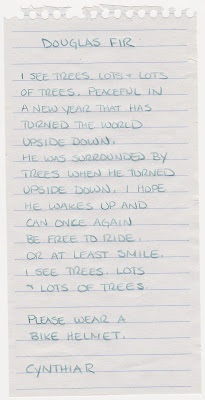 DOUGLAS FIR
I SEE TREES. LOTS + LOTS
OF TREES. PEACEFUL IN
A NEW YEAR THAT HAS
TURNED THE WORLD
UPSIDE DOWN.
HE WAS SURROUNDED BY
TREES WHEN HE TURNED
UPSIDE DOWN. I HOPE
HE WAKES UP AND
CAN ONCE AGAIN
BE FREE TO RIDE.
OR AT LEAST SMILE.
I SEE TREES. LOTS
+ LOTS OF TREES.
PLEASE WEAR A
BIKE HELMET.
CYNTHIA R